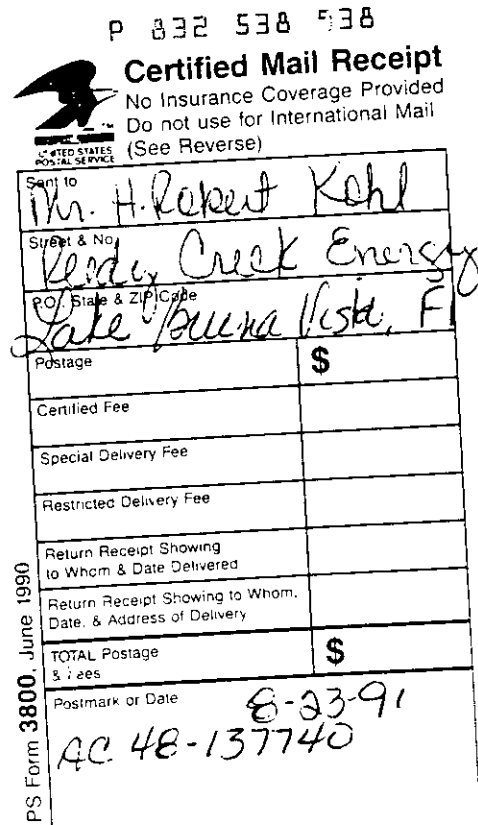 P 832 538 538
Certified Mail Receipt
No Insurance Coverage Provided
Do not use for International Mail
(See Reverse)
UNITED STATES
POSTAL SERVICE
Sent to
Mr. H. Robert Kohl
Street & No.
Reedy Creek Energy
P.O., State & ZIP Code
Lake Buena Vista, Fl
Postage
$
Certified Fee
Special Delivery Fee
Restricted Delivery Fee
Return Receipt Showing
to Whom & Date Delivered
Return Receipt Showing to Whom,
Date, & Address of Delivery
TOTAL Postage
& Fees
$
Postmark or Date
8-23-91
AC 48-137740
PS Form 3800, June 1990